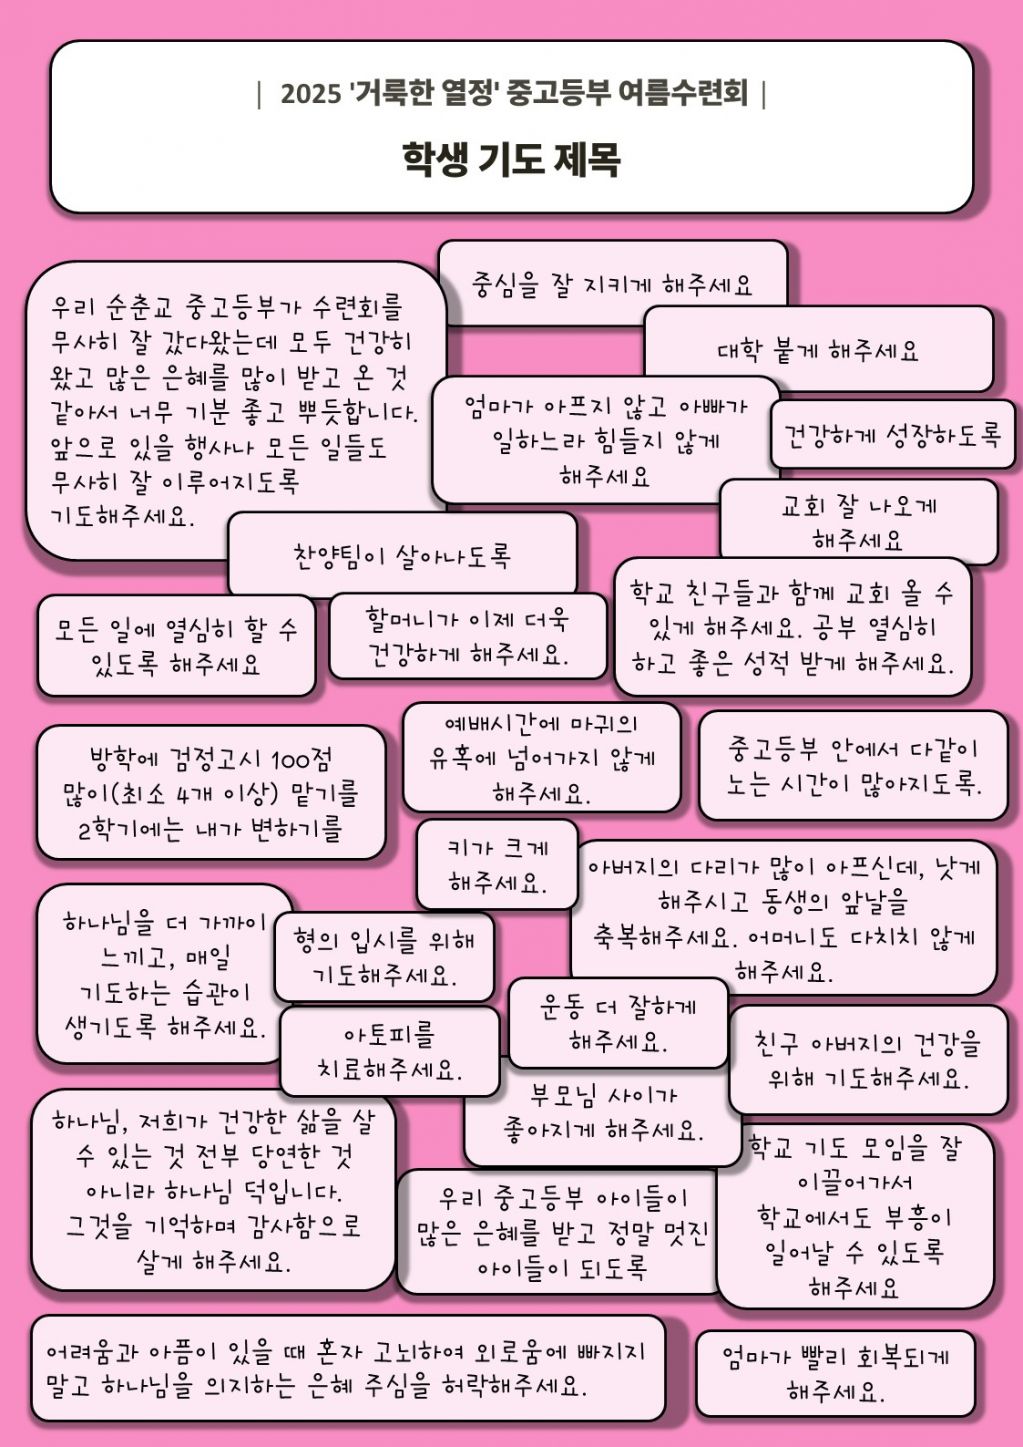 | 2025 '거룩한 열정' 중고등부 여름수련회 |
학생 기도 제목
우리 순춘교 중고등부가 수련회를
무사히 잘 갔다왔는데 모두 건강히
왔고 많은 은혜를 많이 받고 온 것
같아서 너무 기분 좋고 뿌듯합니다.
앞으로 있을 행사나 모든 일들도
무사히 잘 이루어지도록
기도해주세요.
중심을 잘 지키게 해주세요
대학 붙게 해주세요
엄마가 아프지 않고 아빠가
일하느라 힘들지 않게
해주세요
건강하게 성장하도록
교회 잘 나오게
해주세요
찬양팀이 살아나도록
모든 일에 열심히 할 수
있도록 해주세요
할머니가 이제 더욱
건강하게 해주세요.
학교 친구들과 함께 교회 올 수
있게 해주세요. 공부 열심히
하고 좋은 성적 받게 해주세요.
방학에 검정고시 100점
많이(최소 4개 이상) 맡기를
2학기에는 내가 변하기를
예배시간에 마귀의
유혹에 넘어가지 않게
해주세요.
중고등부 안에서 다같이
노는 시간이 많아지도록.
키가 크게
해주세요.
아버지의 다리가 많이 아프신데, 낫게
해주시고 동생의 앞날을
축복해주세요. 어머니도 다치치 않게
해주세요.
하나님을 더 가까이
느끼고, 매일
기도하는 습관이
생기도록 해주세요.
형의 입시를 위해
기도해주세요.
아토피를
치료해주세요.
운동 더 잘하게
해주세요.
친구 아버지의 건강을
위해 기도해주세요.
부모님 사이가
좋아지게 해주세요.
하나님, 저희가 건강한 삶을 살
수 있는 것 전부 당연한 것
아니라 하나님 덕입니다.
그것을 기억하며 감사함으로
살게 해주세요.
우리 중고등부 아이들이
많은 은혜를 받고 정말 멋진
아이들이 되도록
학교 기도 모임을 잘
이끌어가서
학교에서도 부흥이
일어날 수 있도록
해주세요
어려움과 아픔이 있을 때 혼자 고뇌하여 외로움에 빠지지
말고 하나님을 의지하는 은혜 주심을 허락해주세요.
엄마가 빨리 회복되게
해주세요.